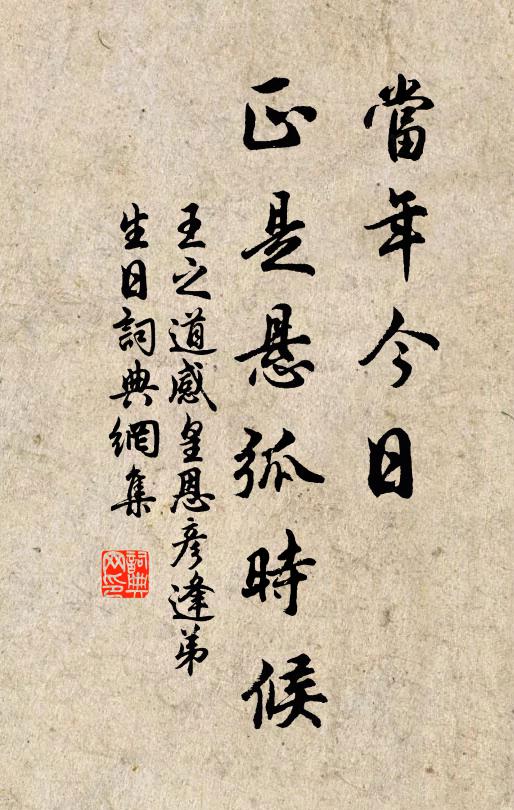 當年今日
正是悬弧時候
王之道感皇恩彦逢弟
生日詞典網集
詞典
网印